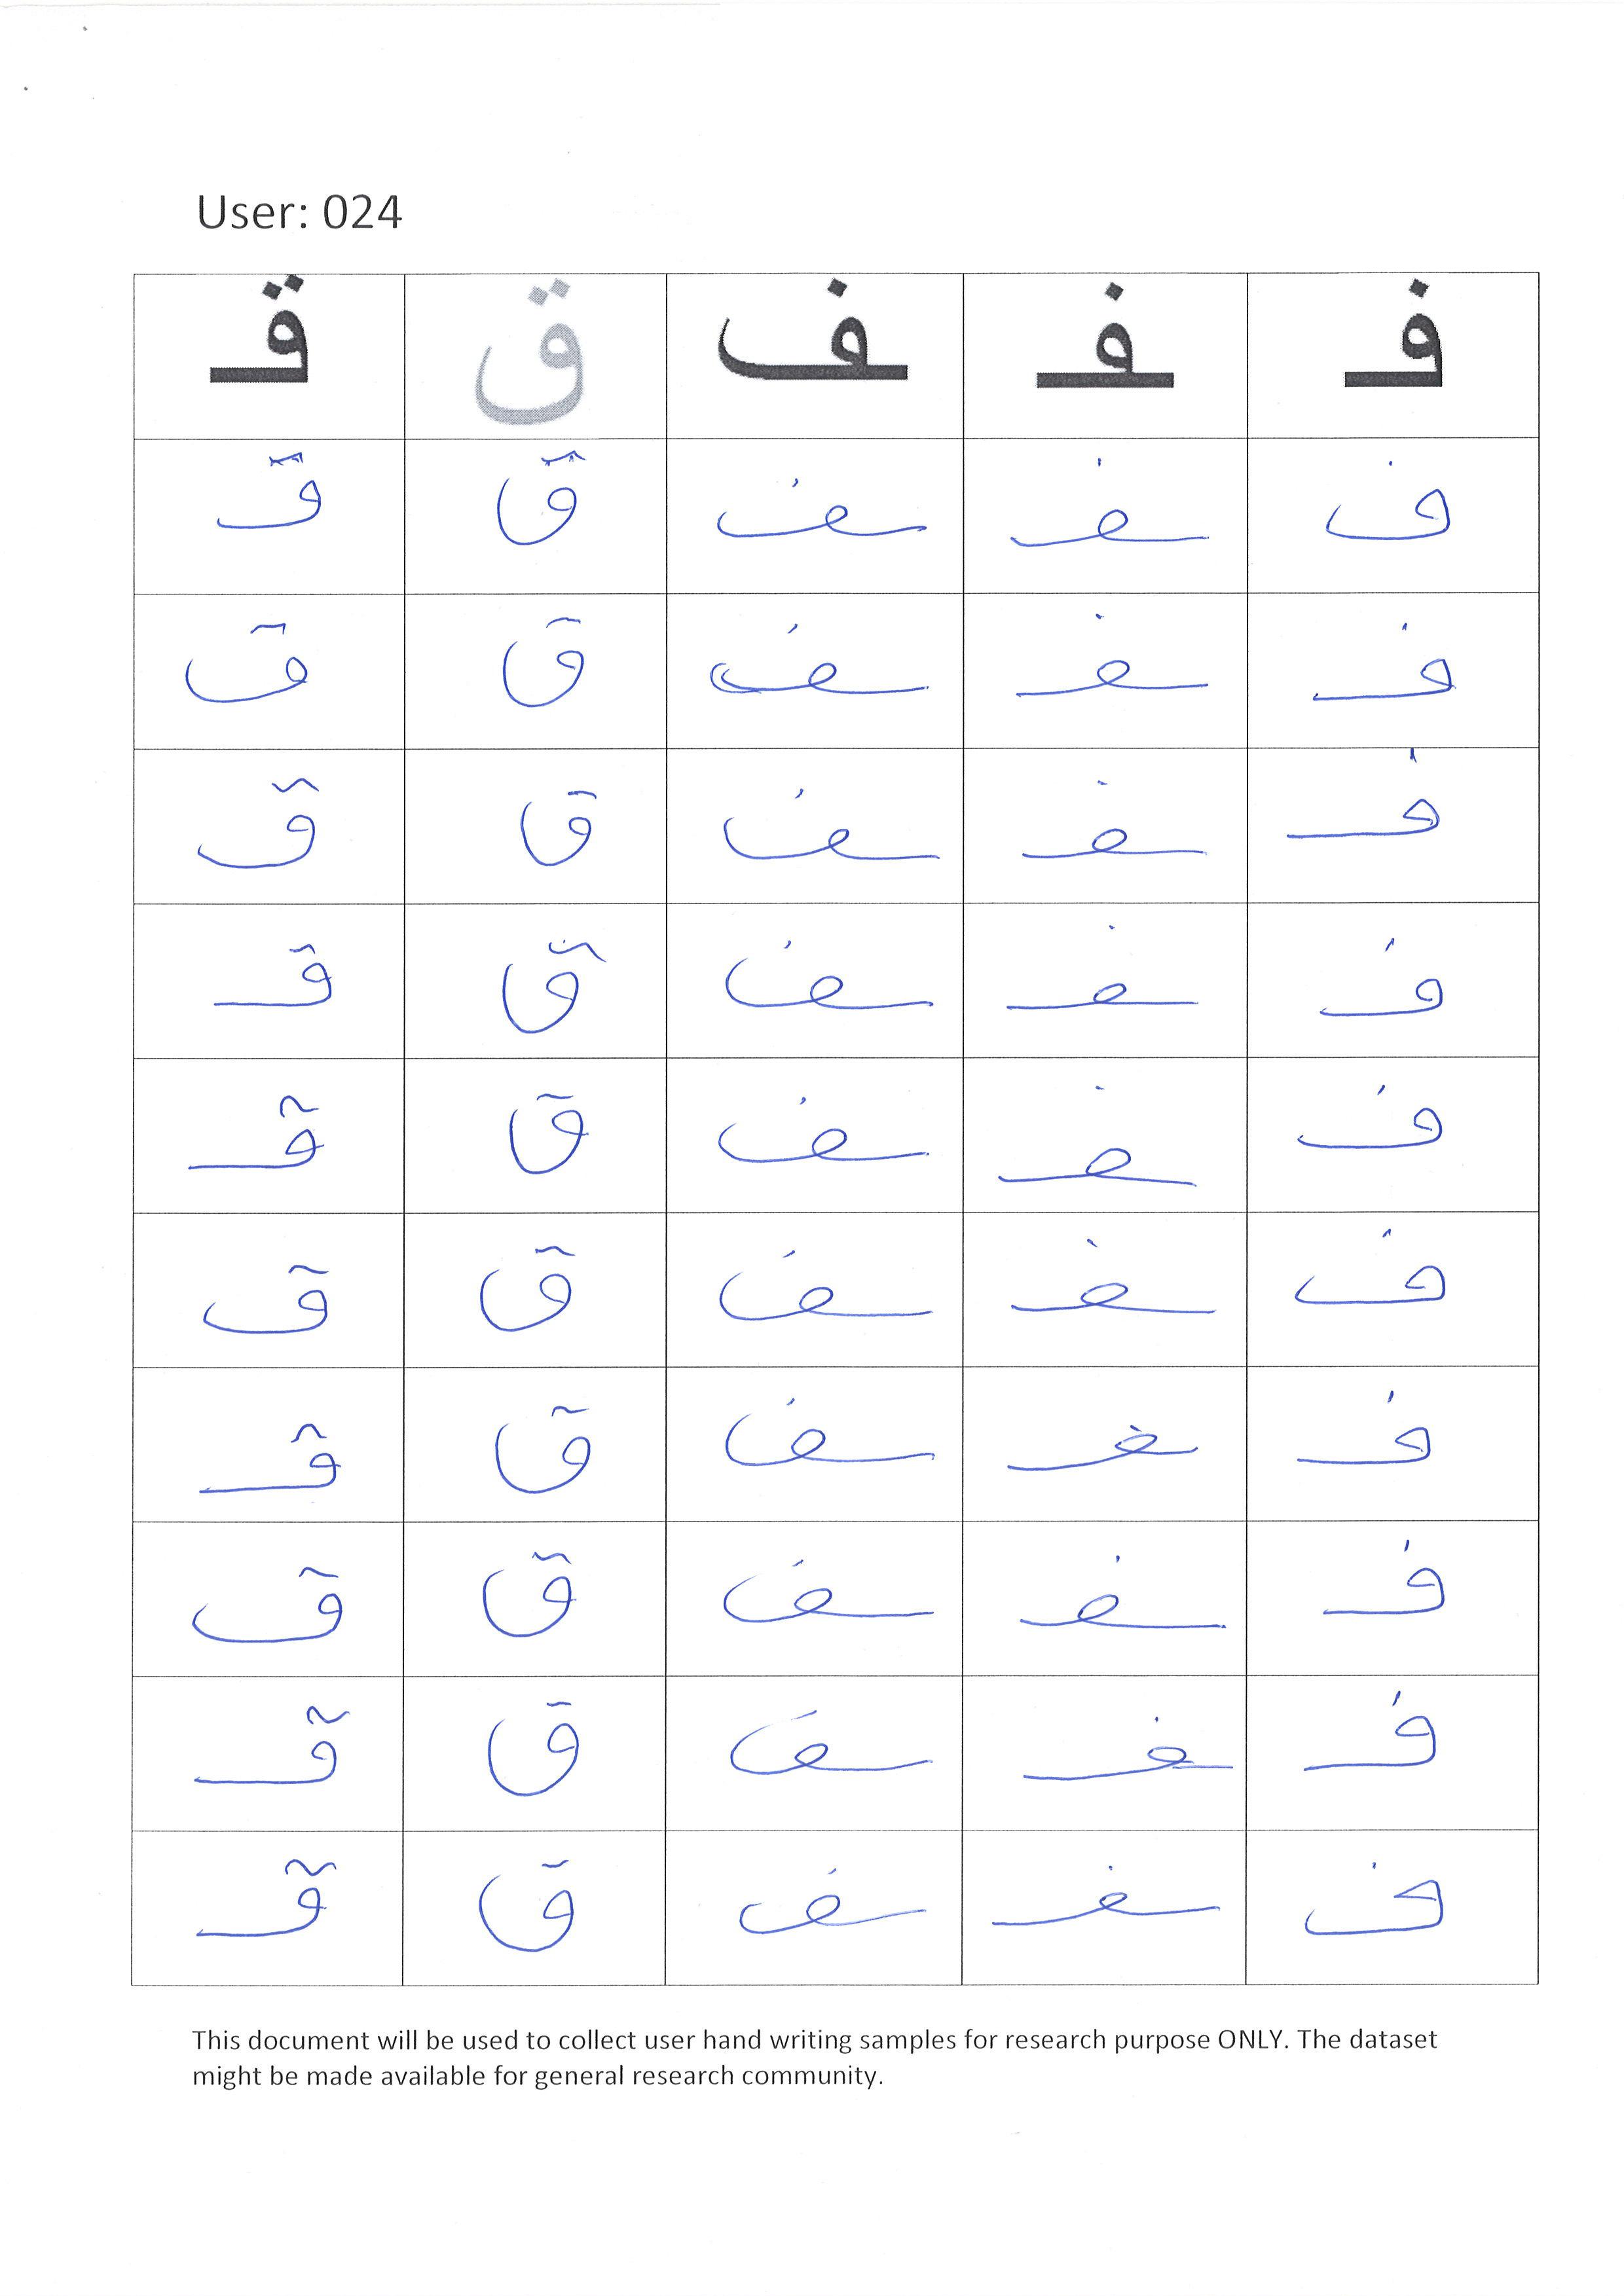 User: 024
فـ ـفـ ـف ق قـ
فـ ـفـ ـف ق قـ
فـ ـفـ ـف ق قـ
فـ ـفـ ـف ق قـ
فـ ـفـ ـف ق قـ
فـ ـفـ ـف ق قـ
فـ ـفـ ـف ق قـ
فـ ـفـ ـف ق قـ
فـ ـفـ ـف ق قـ
فـ ـفـ ـف ق قـ
فـ ـفـ ـف ق قـ
This document will be used to collect user hand writing samples for research purpose ONLY. The dataset
might be made available for general research community.